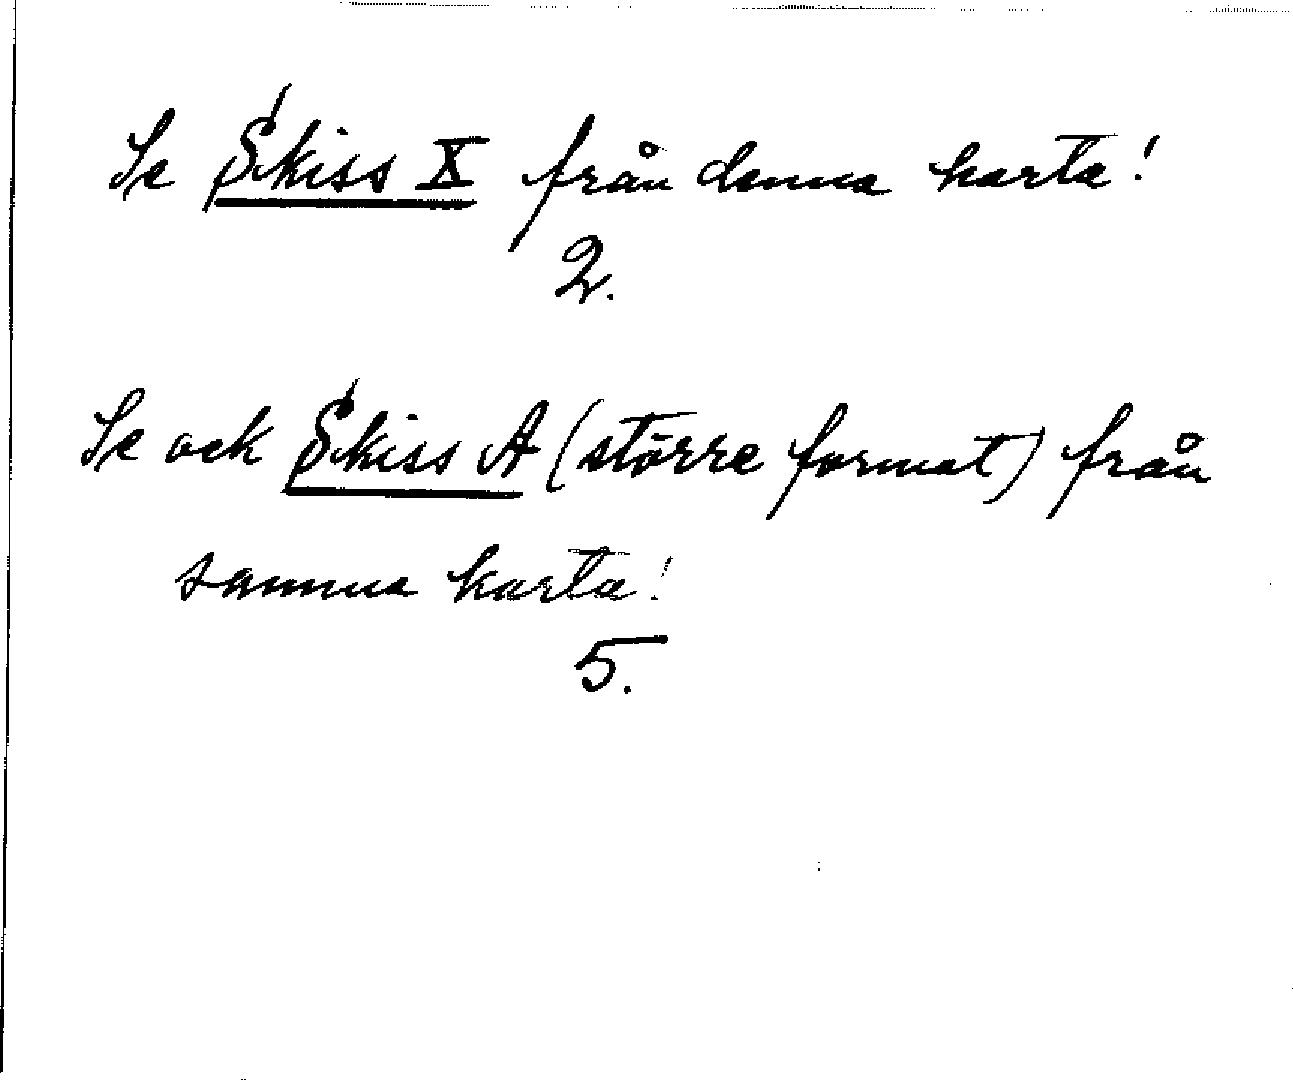 Se Skiss X från denna karta!
2.
Se ock Skiss A (större format) från
samma karta!
5.